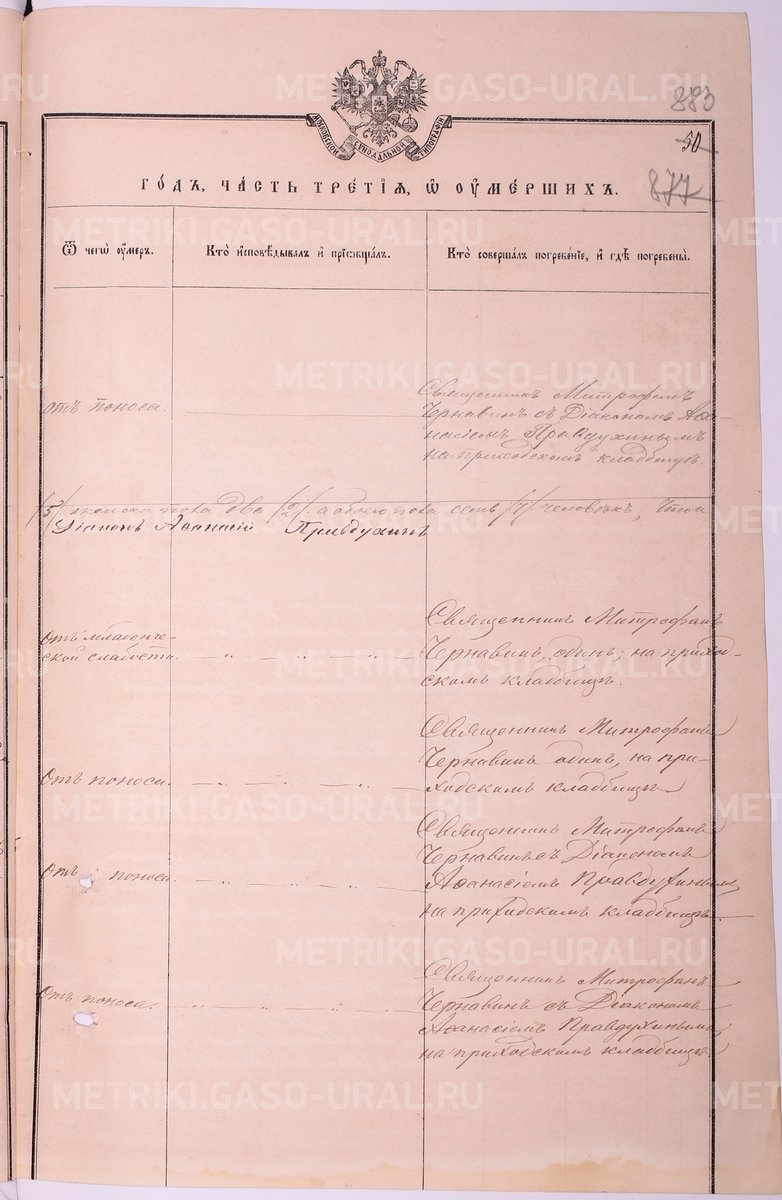 883
МОСКОВСКОЙ СѴНОДАЛЬНОЙ ТИПОГРАФІИ
50
877
ГО́ДЪ, ЧА́СТЬ ТРЕ́ТІѦ, Ѡ҆ ОУ҆МЕ́РШИХЪ.
Ѿ чегѡ̀ оу҆́меръ.
Кто̀ и҆сповѣ́дывалъ и҆ прїѡбща́лъ.
Кто̀ соверша́лъ погребе́нїе, и҆ гдѣ̀ погребены̀.
отъ поноса.
Священникъ Митрофанъ
Чернавинъ съ Діакономъ Аѳа-
насіемъ Правдухинымъ
на приходскомъ кладбищѣ.
/5/ женска пола два /2/ а обоего пола семь /7/ человѣкъ,
Діаконъ Аѳанасій Правдухинъ
Отъ младенче-
ской слабости.
Священникъ Митрофанъ
Чернавинъ, одинъ; на приход-
скомъ кладбищѣ.
Отъ поноса.
Священникъ Митрофанъ
Чернавинъ одинъ, на при-
ходскомъ кладбищѣ.
Отъ поноса.
Священникъ Митрофанъ
Чернавинъ съ Діакономъ
Аѳанасіемъ Правдухинымъ
на приходскомъ кладбищѣ.
Отъ поноса.
Священникъ Митрофанъ
Чернавинъ съ Діакономъ
Аѳанасіемъ Правдухинымъ,
на приходскомъ кладбищѣ.
METRIKI.GASO-URAL.RU